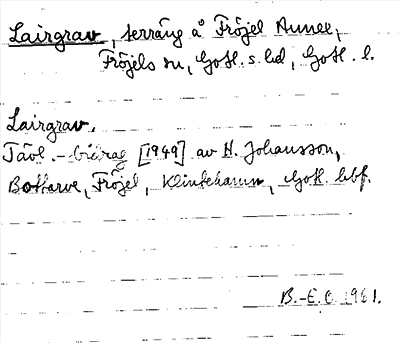 Lairgrav, terräng å Fröjel Annex,
Fröjels sn, Gotl. s. hd, Gotl. l.
Lairgrav.
Tävl.-bidrag [1949] av H. Johansson,
Bottarve, Fröjel, Klintehamn, Gotl. lbf.
B.-E. O. 1961.